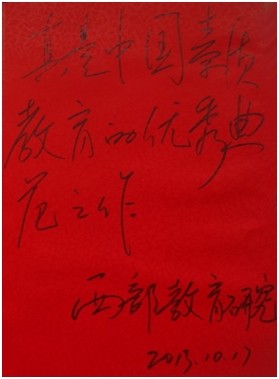 真是中国素质
教育的优秀典
范之作
西部教育研究
2013.10.17